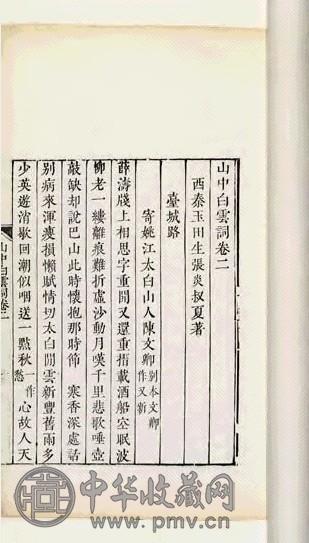 山中白雲詞卷二
西秦玉田生張炎叔夏著
臺城路
寄姚江太白山人陳文卿 別本文卿作又新
薛濤牋上相思字重開又還重摺載酒船空眠波
柳老一縷離痕難折虛沙動月嘆千里悲歌唾壺
敲缺却說巴山此時懷抱那時節 寒香深處話
別病來渾瘦損懶賦情切太白閒雲新豐舊雨多
少英遊消歇回潮似咽送一點秋愁一作心故人天
山中白雲詞卷二
中华收藏网
www.pmv.cn